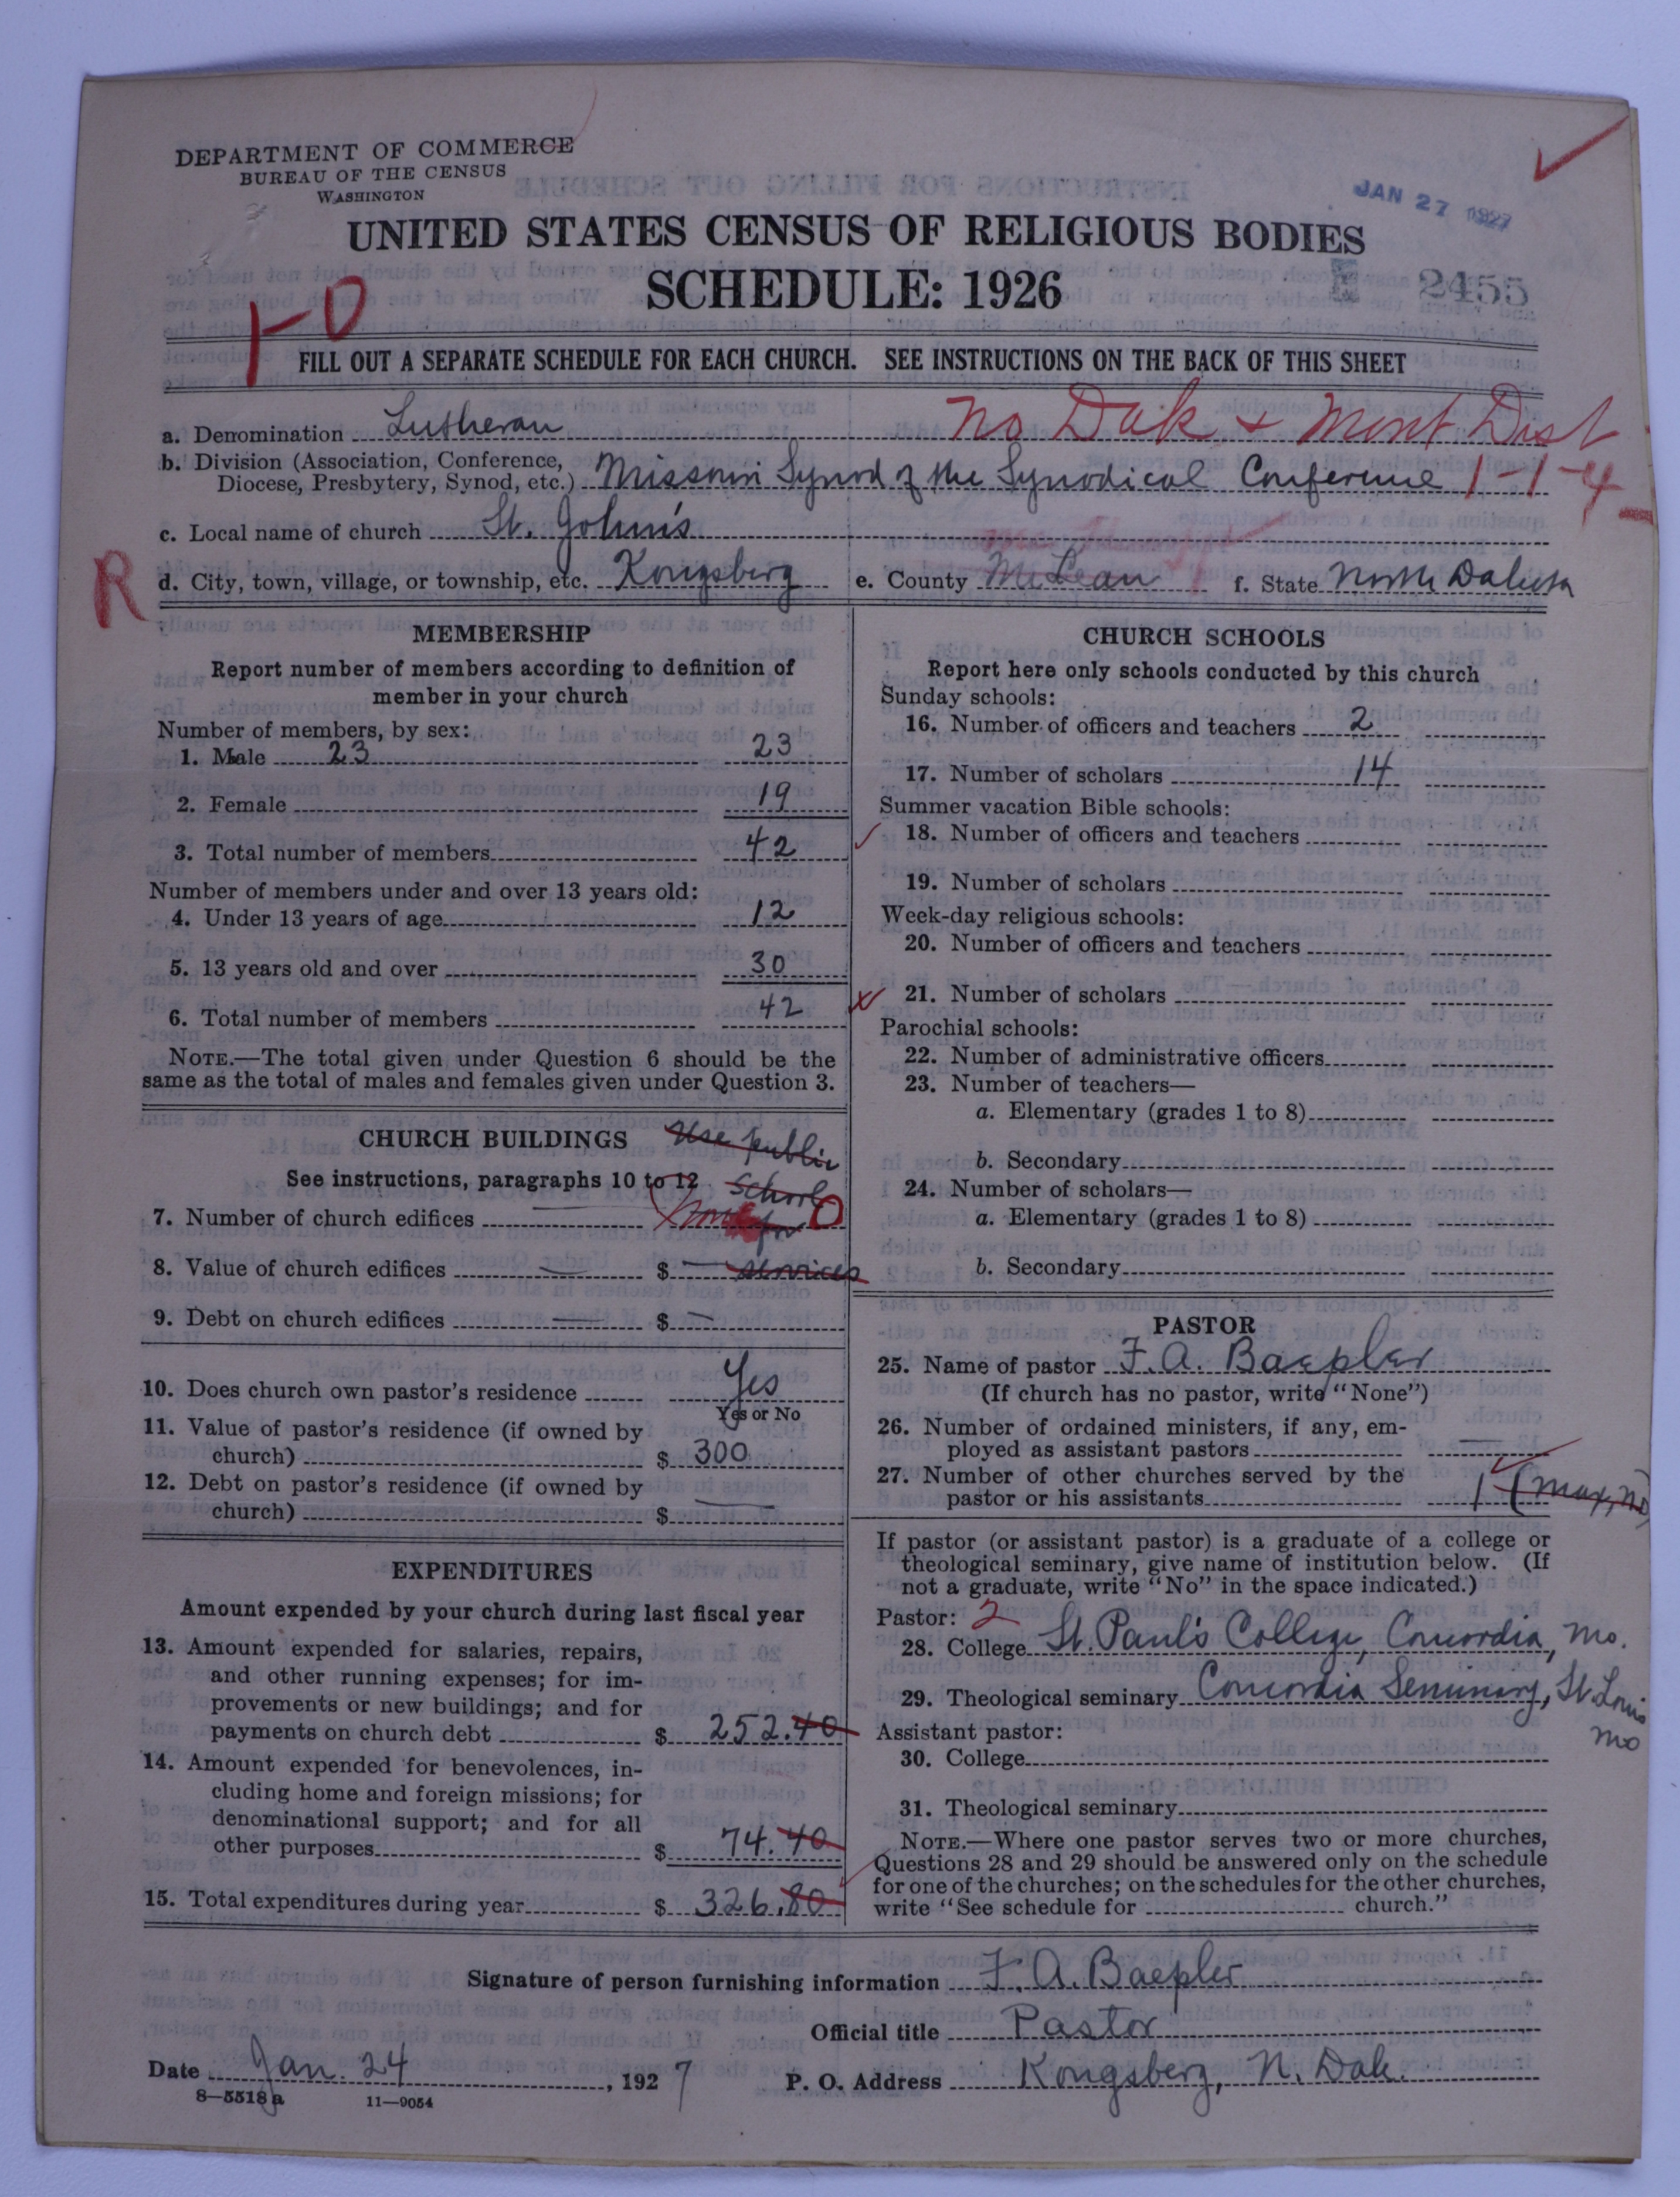 DEPARTMENT OF COMMERCE
BUREAU OF THE CENSUS
WASHINGTON
JAN 27 1927
UNITED STATES CENSUS OF RELIGIOUS BODIES
SCHEDULE: 1926
2455
1-0
FILL OUT A SEPARATE SCHEDULE FOR EACH CHURCH. SEE INSTRUCTIONS ON THE BACK OF THIS SHEET
No Dak & Mont Dist
a. Denomination Lutheran
b. Division (Association, Conference,
Diocese, Presbytery, Synod, etc.) Missouri Synod of the Synodical Conference 1-1-4
c. Local name of church St. John's
R
d. City, town, village, or township, etc. Kongsberg e. County McLean f. State North Dakota
MEMBERSHIP
Report number of members according to definition of
member in your church
Number of members, by sex:
1. Male 23 23
2. Female 19
3. Total number of members 42
Number of members under and over 13 years old:
4. Under 13 years of age 12
5. 13 years old and over 30
6. Total number of members 42
NOTE.—The total given under Question 6 should be the
same as the total of males and females given under Question 3.
CHURCH BUILDINGS Use public
See instructions, paragraphs 10 to 12 school
7. Number of church edifices None for 0
8. Value of church edifices — $ — services
9. Debt on church edifices — $ —
10. Does church own pastor's residence Yes
Yes or No
11. Value of pastor's residence (if owned by
church) $ 300
12. Debt on pastor's residence (if owned by
church) $ —
EXPENDITURES
Amount expended by your church during last fiscal year
13. Amount expended for salaries, repairs,
and other running expenses; for im-
provements or new buildings; and for
payments on church debt $ 252.40
14. Amount expended for benevolences, in-
cluding home and foreign missions; for
denominational support; and for all
other purposes $ 74.40
15. Total expenditures during year $ 326.80
CHURCH SCHOOLS
Report here only schools conducted by this church
Sunday schools:
16. Number of officers and teachers 2
17. Number of scholars 14
Summer vacation Bible schools:
18. Number of officers and teachers
19. Number of scholars
Week-day religious schools:
20. Number of officers and teachers
21. Number of scholars
Parochial schools:
22. Number of administrative officers
23. Number of teachers—
a. Elementary (grades 1 to 8)
b. Secondary
24. Number of scholars—
a. Elementary (grades 1 to 8)
b. Secondary
PASTOR
25. Name of pastor F. A. Baepler
(If church has no pastor, write "None")
26. Number of ordained ministers, if any, em-
ployed as assistant pastors —
27. Number of other churches served by the
pastor or his assistants 1 (Max, ND)
If pastor (or assistant pastor) is a graduate of a college or
theological seminary, give name of institution below. (If
not a graduate, write "No" in the space indicated.)
Pastor: 2
28. College St. Paul's College, Concordia, Mo.
29. Theological seminary Concordia Seminary, St. Louis
Mo
Assistant pastor:
30. College
31. Theological seminary
NOTE.—Where one pastor serves two or more churches,
Questions 28 and 29 should be answered only on the schedule
for one of the churches; on the schedules for the other churches,
write "See schedule for church."
Signature of person furnishing information F. A. Baepler
Official title Pastor
Date Jan. 24, 1927 P. O. Address Kongsberg, N. Dak.
8—5518a 11—9054